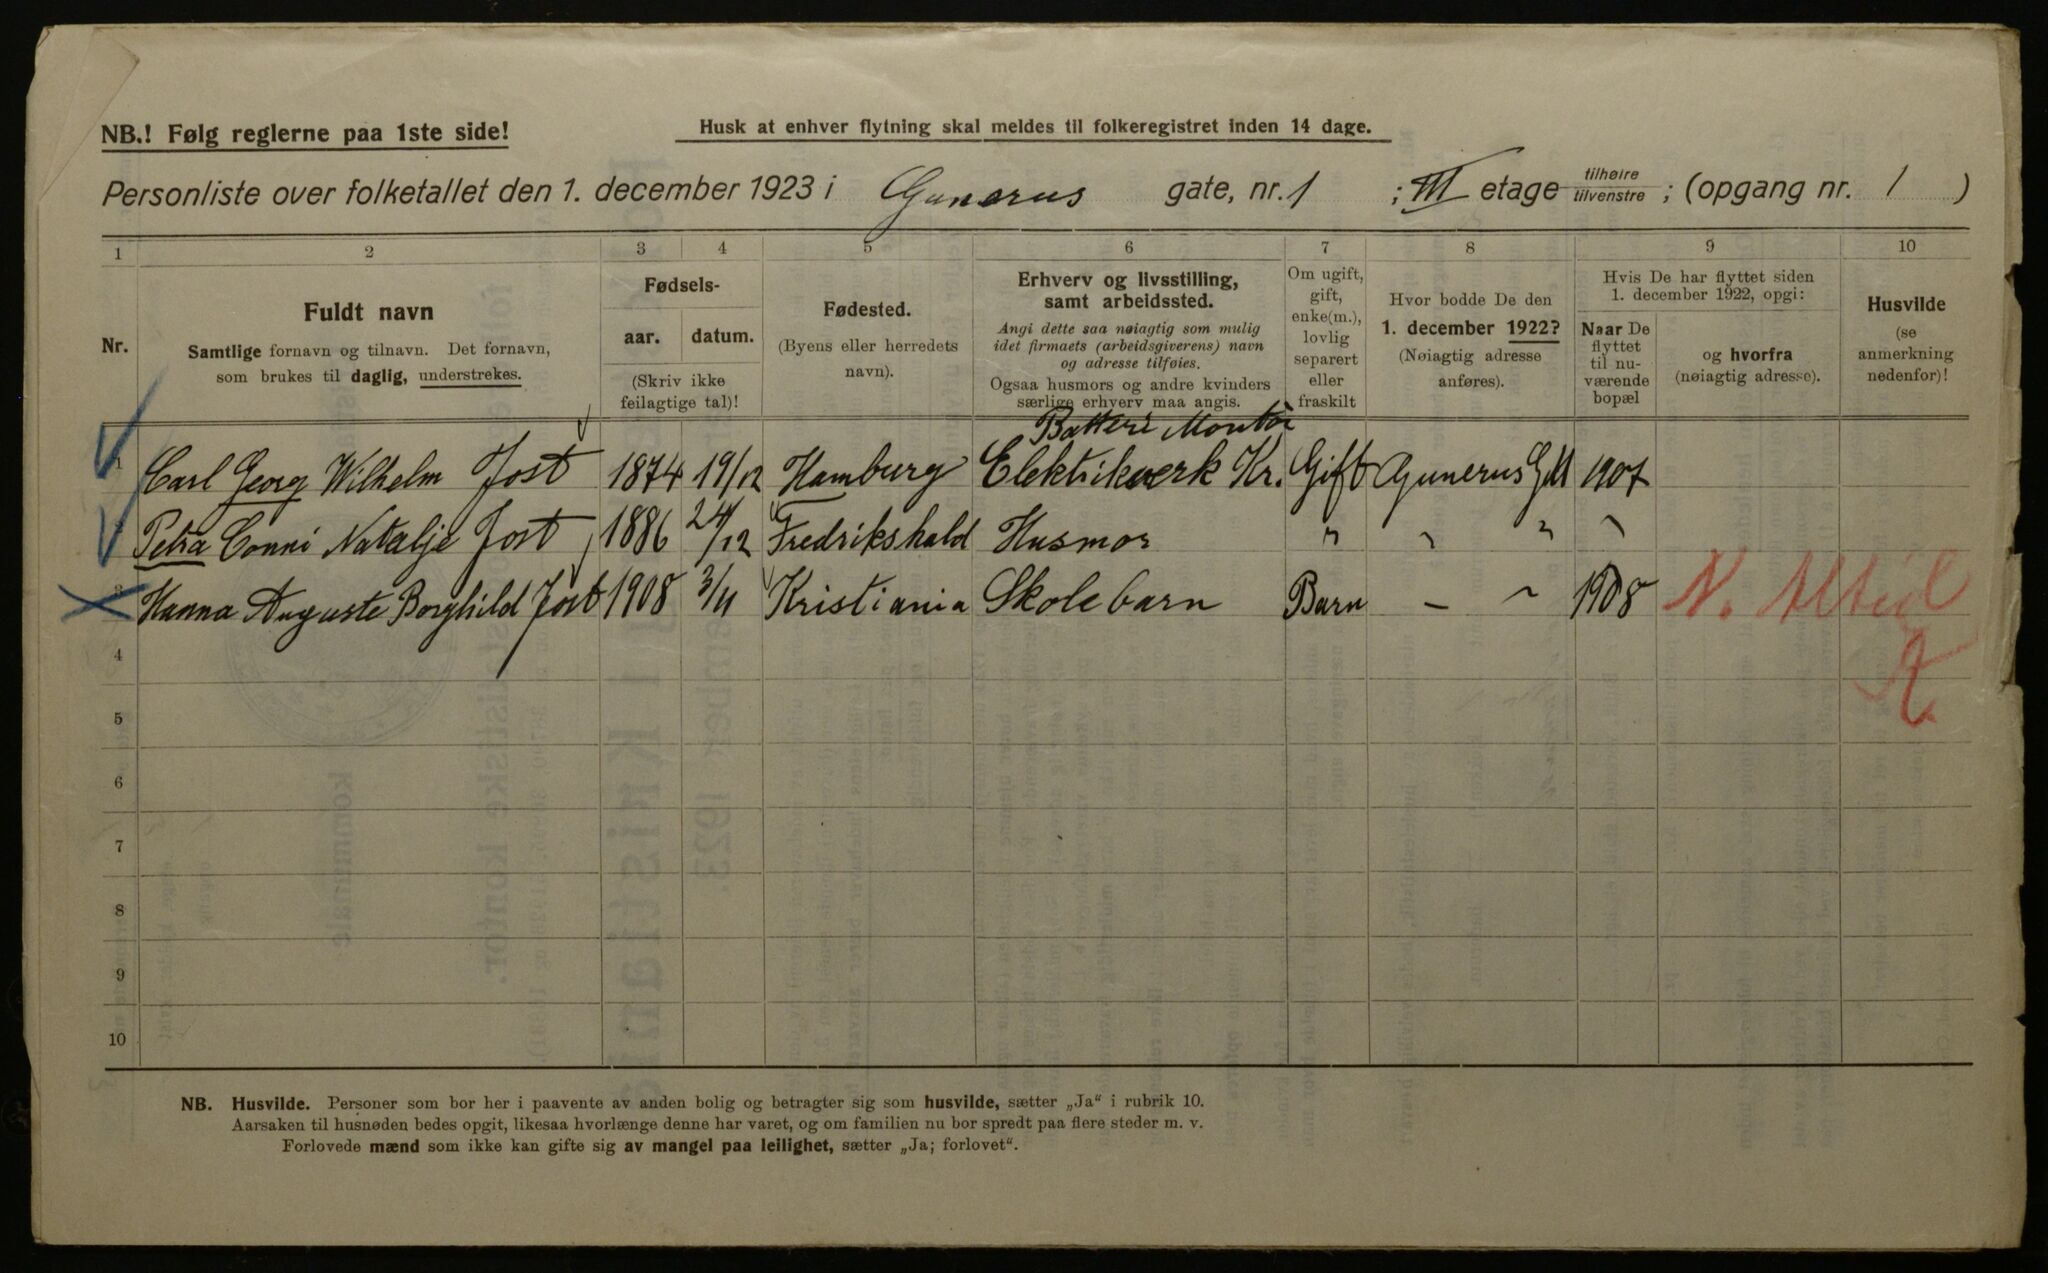 NB.! Følg reglerne paa 1ste side!
Husk at enhver flytning skal meldes til folkeregistret inden 14 dage.
Personliste over folketallet den 1. december 1923 i Gunerus gate, nr. 1 ; III etage tilhøire tilvenstre ; (opgang nr. 1 )
1 2 3 4 5 6 7 8 9 10
Nr.
Fuldt navn
Samtlige fornavn og tilnavn. Det fornavn,
som brukes til daglig, understrekes.
Fødsels-
aar. datum.
(Skriv ikke
feilagtige tal)!
Fødested.
(Byens eller herredets
navn).
Erhverv og livsstilling,
samt arbeidssted.
Angi dette saa nøiagtig som mulig
idet firmaets (arbeidsgiverens) navn
og adresse tilføies.
Ogsaa husmors og andre kvinders
særlige erhverv maa angis.
Om ugift,
gift,
enke(m.),
lovlig
separert
eller
fraskilt
Hvor bodde De den
1. december 1922?
(Nøiagtig adresse
anføres).
Hvis De har flyttet siden
1. december 1922, opgi:
Naar De
flyttet
til nu-
værende
bopæl
og hvorfra
(nøiagtig adresse).
Husvilde
(se
anmerkning
nedenfor)!
Batteri Montør
1 Carl Georg Wilhelm Jost 1874 19/12 Hamburg Elektrikverk Kr. Gift Gunerus G 1 1907
Petra Conni Natalje Jost 1886 24/12 Fredrikshald Husmor " " " "
3 Hanna Auguste Borghild Jost 1908 3/11 Kristiania Skolebarn Barn – " 1908 N. Altid
4
5
6
7
8
9
10
NB. Husvilde. Personer som bor her i paavente av anden bolig og betragter sig som husvilde, sætter „Ja“ i rubrik 10.
Aarsaken til husnøden bedes opgit, likesaa hvorlænge denne har varet, og om familien nu bor spredt paa flere steder m. v.
Forlovede mænd som ikke kan gifte sig av mangel paa leilighet, sætter „Ja; forlovet“.